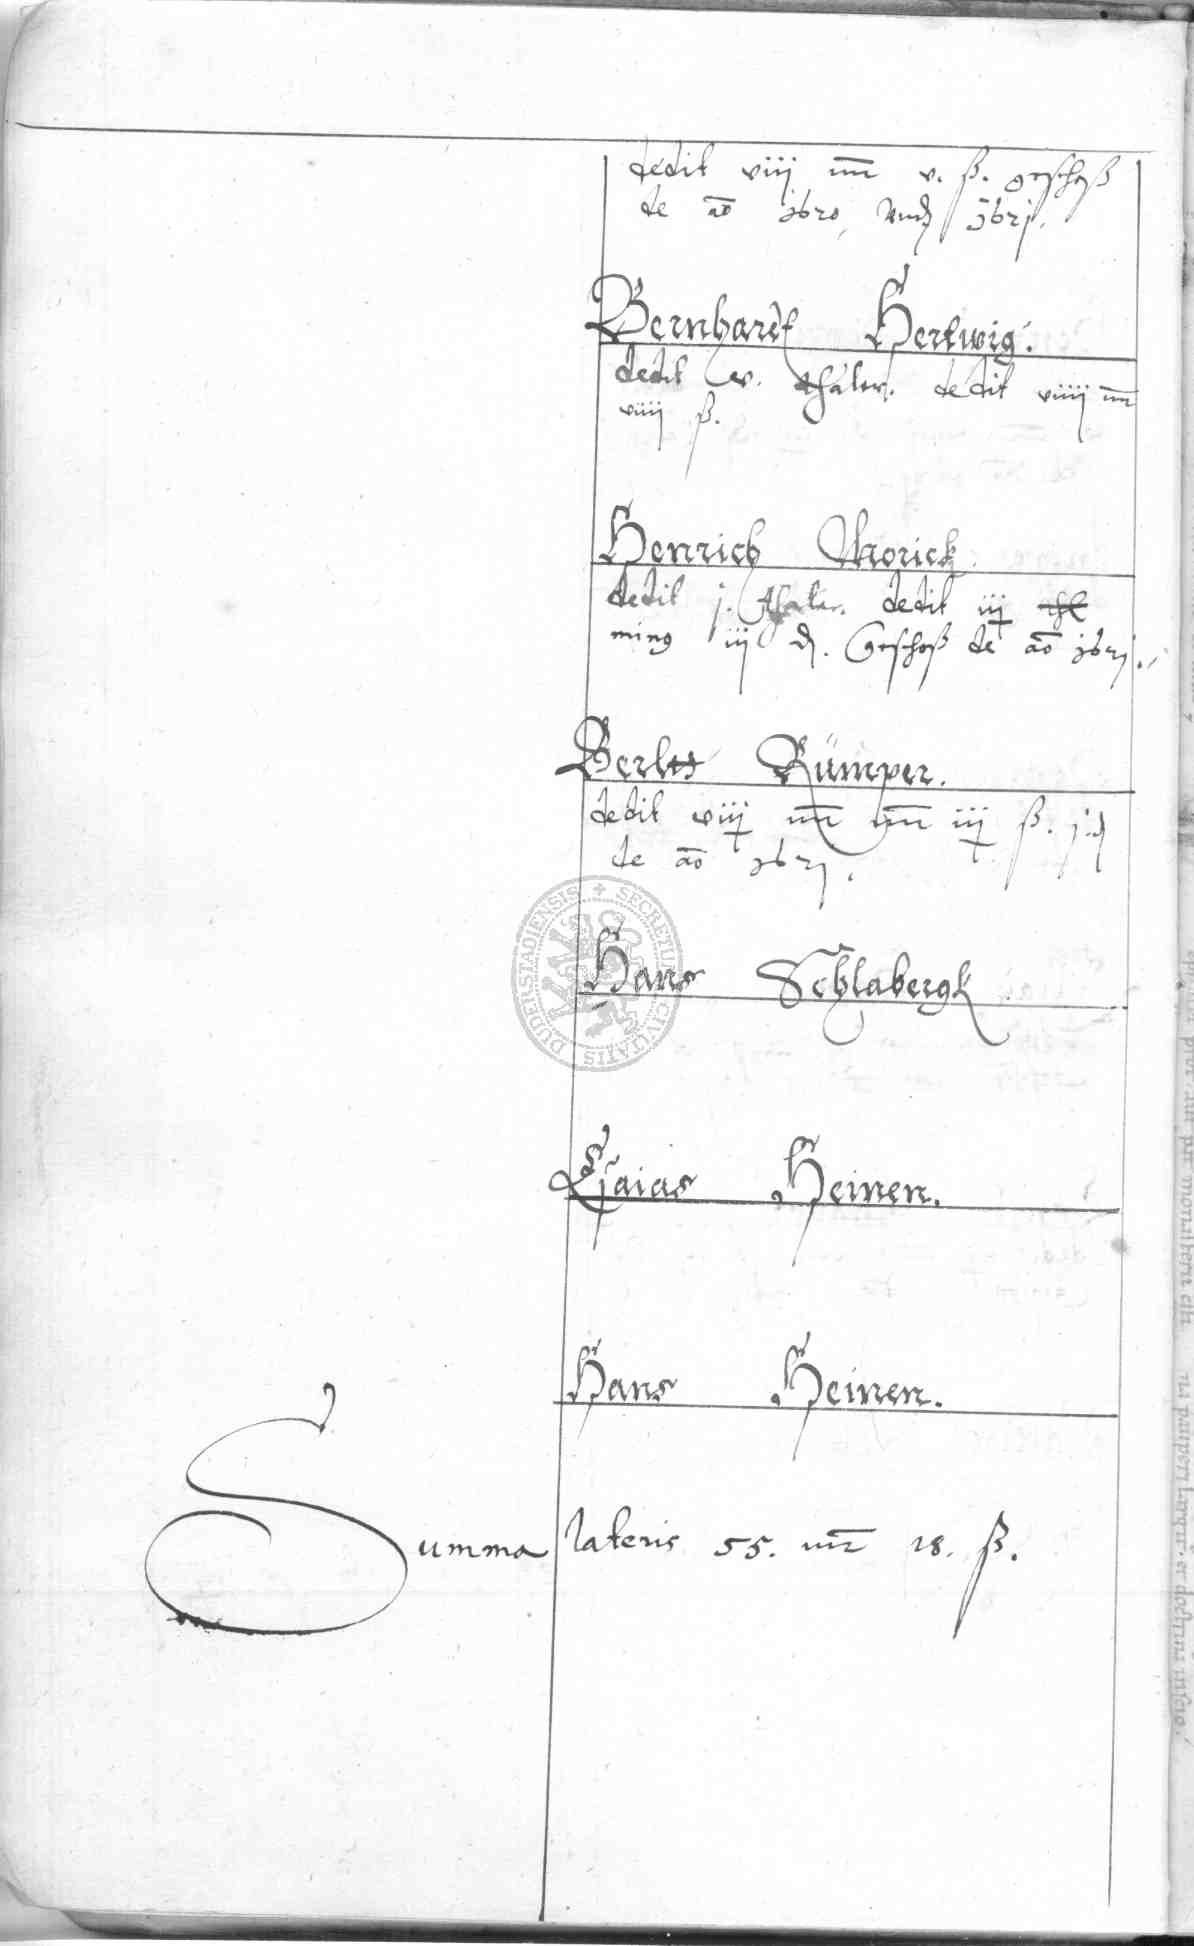 dedit viij mr v. ß. geschoß
de ao 1620, vnd 1621.
Bernhardt Hertwig.
dedit v. thaler. dedit viiij mr
viiij ß.
Henrich Morick
dedit j. thaler. dedit iij
iij d. Geschoß de ao 1621.
Berltt Rümper.
dedit viij mr iij ß. j d
de ao 1621.
Hans Schlabergk
Esaias Heinen.
Hans Heinen.
Summa lateris 55. mr 18. ß.
SECRETUM CIVITATIS DUDERSTADIENSIS